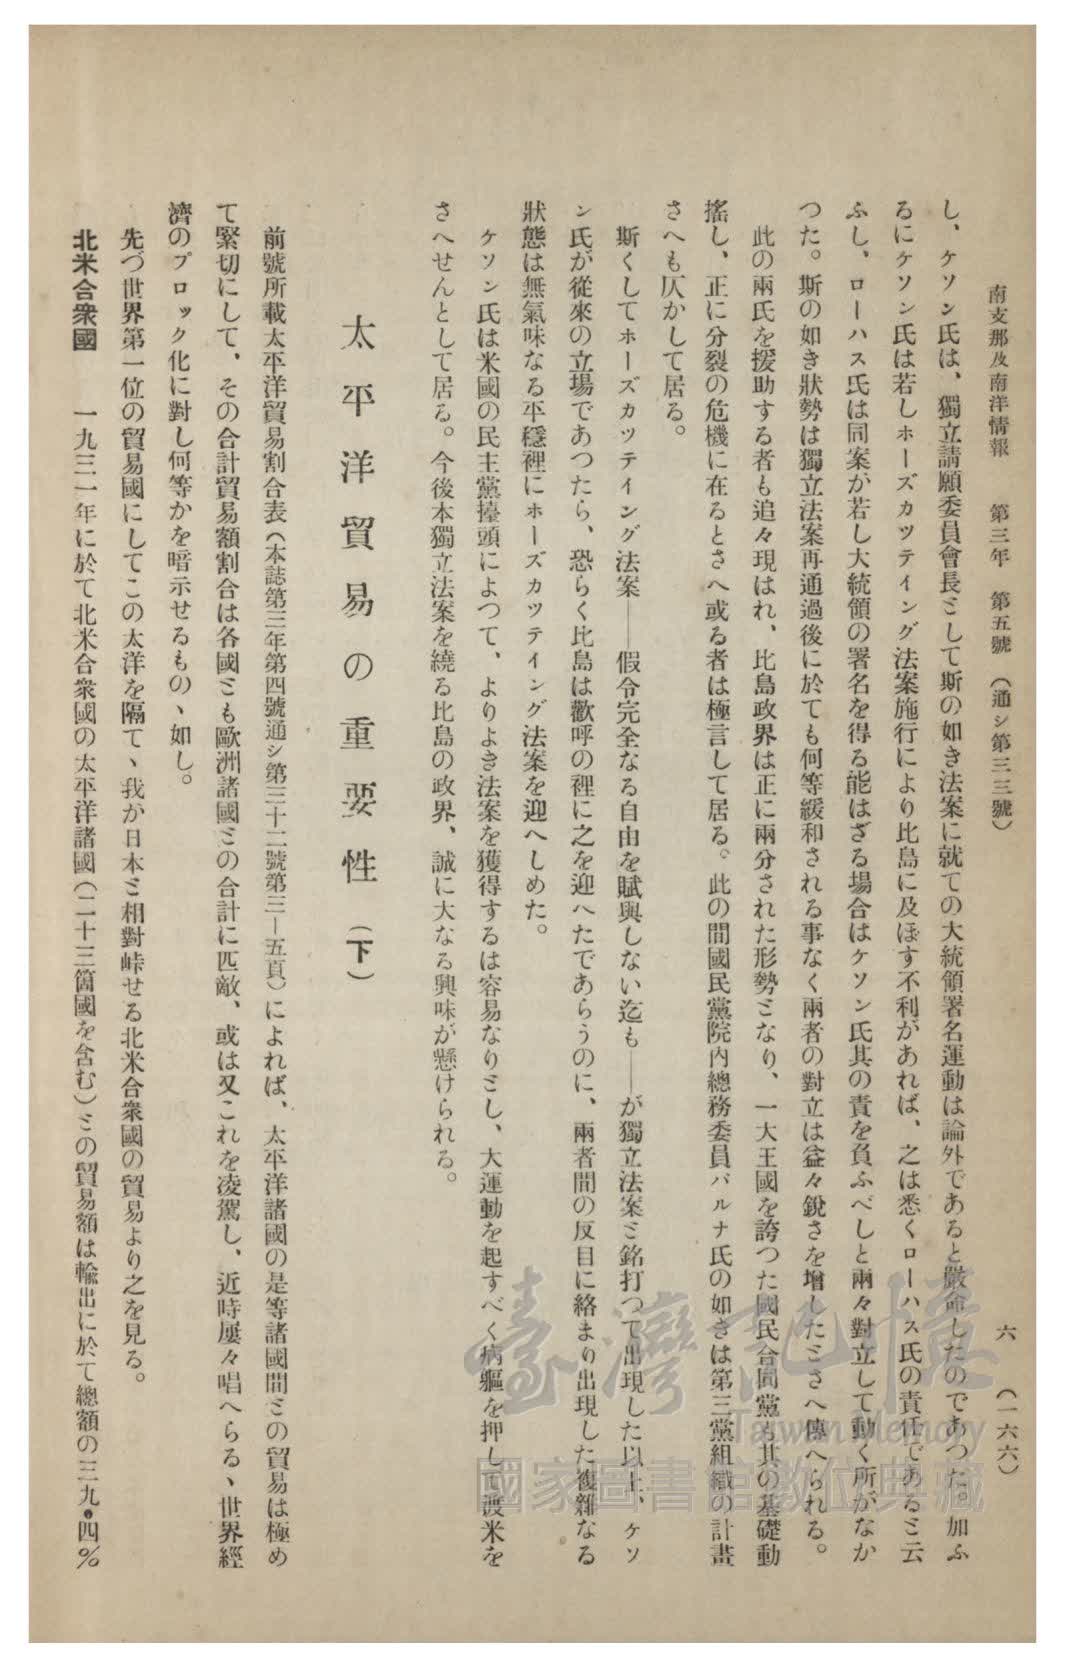 南支那及南洋情報　第三年　第五號　（通シ第三三號）　六　（一六六）
し、ケソン氏は、獨立請願委員會長として斯の如き法案に就ての大統領署名運動は論外であると嚴命したのであつた。加ふ
るにケソン氏は若しホーズカツテイング法案施行により比島に及ほす不利があれば、之は悉くローハス氏の責任であると云
ふし、ローハス氏は同案が若し大統領の署名を得る能はざる場合はケソン氏其の責を負ふべしと兩々對立して動く所がなか
つた。斯の如き狀勢は獨立法案再通過後に於ても何等緩和される事なく兩者の對立は益々銳さを增したとさへ傳へられる。
此の兩氏を援助する者も追々現はれ、比島政界は正に兩分された形勢となり、一大王國を誇つた國民合同黨も其の基礎動
搖し、正に分裂の危機に在るとさへ或る者は極言して居る。此の間國民黨院內總務委員パルナ氏の如きは第三黨組織の計畫
さへも仄かして居る。
斯くしてホーズカツテイング法案――假令完全なる自由を賦與しない迄も――が獨立法案と銘打つて出現した以上、ケソ
ン氏が從來の立場であつたら、恐らく比島は歡呼の裡に之を迎へたであらうのに、兩者間の反目に絡まり出現した複雜なる
狀態は無氣味なる平穩裡にホーズカツテイング法案を迎へしめた。
ケソン氏は米國の民主黨擡頭によつて、よりよき法案を獲得するは容易なりとし、大運動を起すべく病軀を押して渡米を
さへせんとして居る。今後本獨立法案を繞る比島の政界、誠に大なる興味が懸けられる。
太平洋貿易の重要性（下）
前號所載太平洋貿易割合表（本誌第三年第四號通シ第三十二號第三―五頁）によれば、太平洋諸國の是等諸國間との貿易は極め
て緊切にして、その合計貿易額割合は各國とも歐洲諸國との合計に匹敵、或は又これを凌駕し、近時屢々唱へらるゝ世界經
濟のブロック化に對し何等かを暗示せるものゝ如し。
先づ世界第一位の貿易國にしてこの太洋を隔てゝ我が日本と相對峙せる北米合衆國の貿易より之を見る。
北米合衆國　一九三一年に於て北米合衆國の太平洋諸國（二十三箇國を含む）との貿易額は輸出に於て總額の三九・四％
臺灣記憶
Taiwan Memory
國家圖書館數位典藏